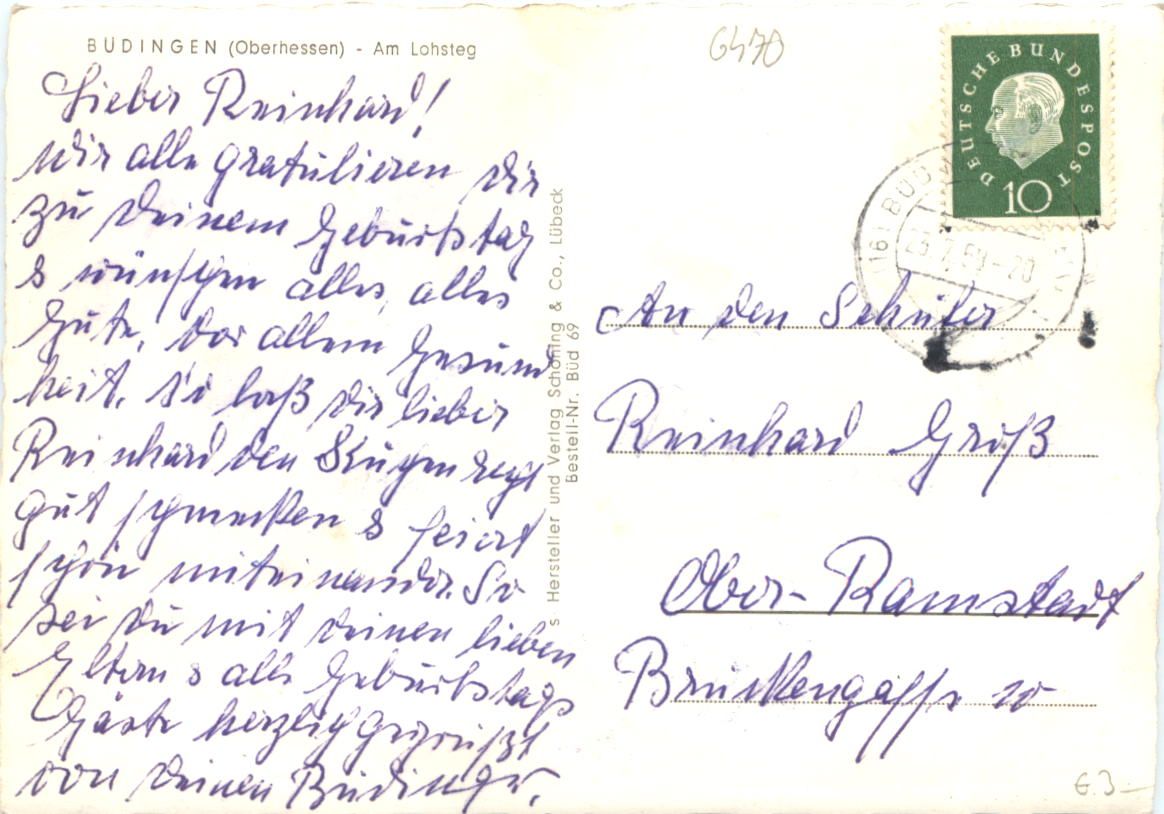 BÜDINGEN (Oberhessen) - Am Lohsteg
Lieber Reinhard!
Wir alle gratulieren Dir
zu Deinem Geburtstag
& wünschen alles, alles
Gute, vor allem Gesund
heit. So laß Dir lieber
Reinhard den Kuchen recht
gut schmecken & feiert
schön miteinander. So
sei Du mit Deinen lieben
Eltern & alle Geburtstags
Gäste herzlich gegrüßt
von Deinen Büdinger.
s Hersteller und Verlag Schöning & Co., Lübeck
Bestell-Nr. Büd 69
6470
DEUTSCHE BUNDESPOST
10
(16) BÜD
7.59-20
An den Schüler
Reinhard Groß
Ober-Ramstadt
Brückengasse 10
€ 3-